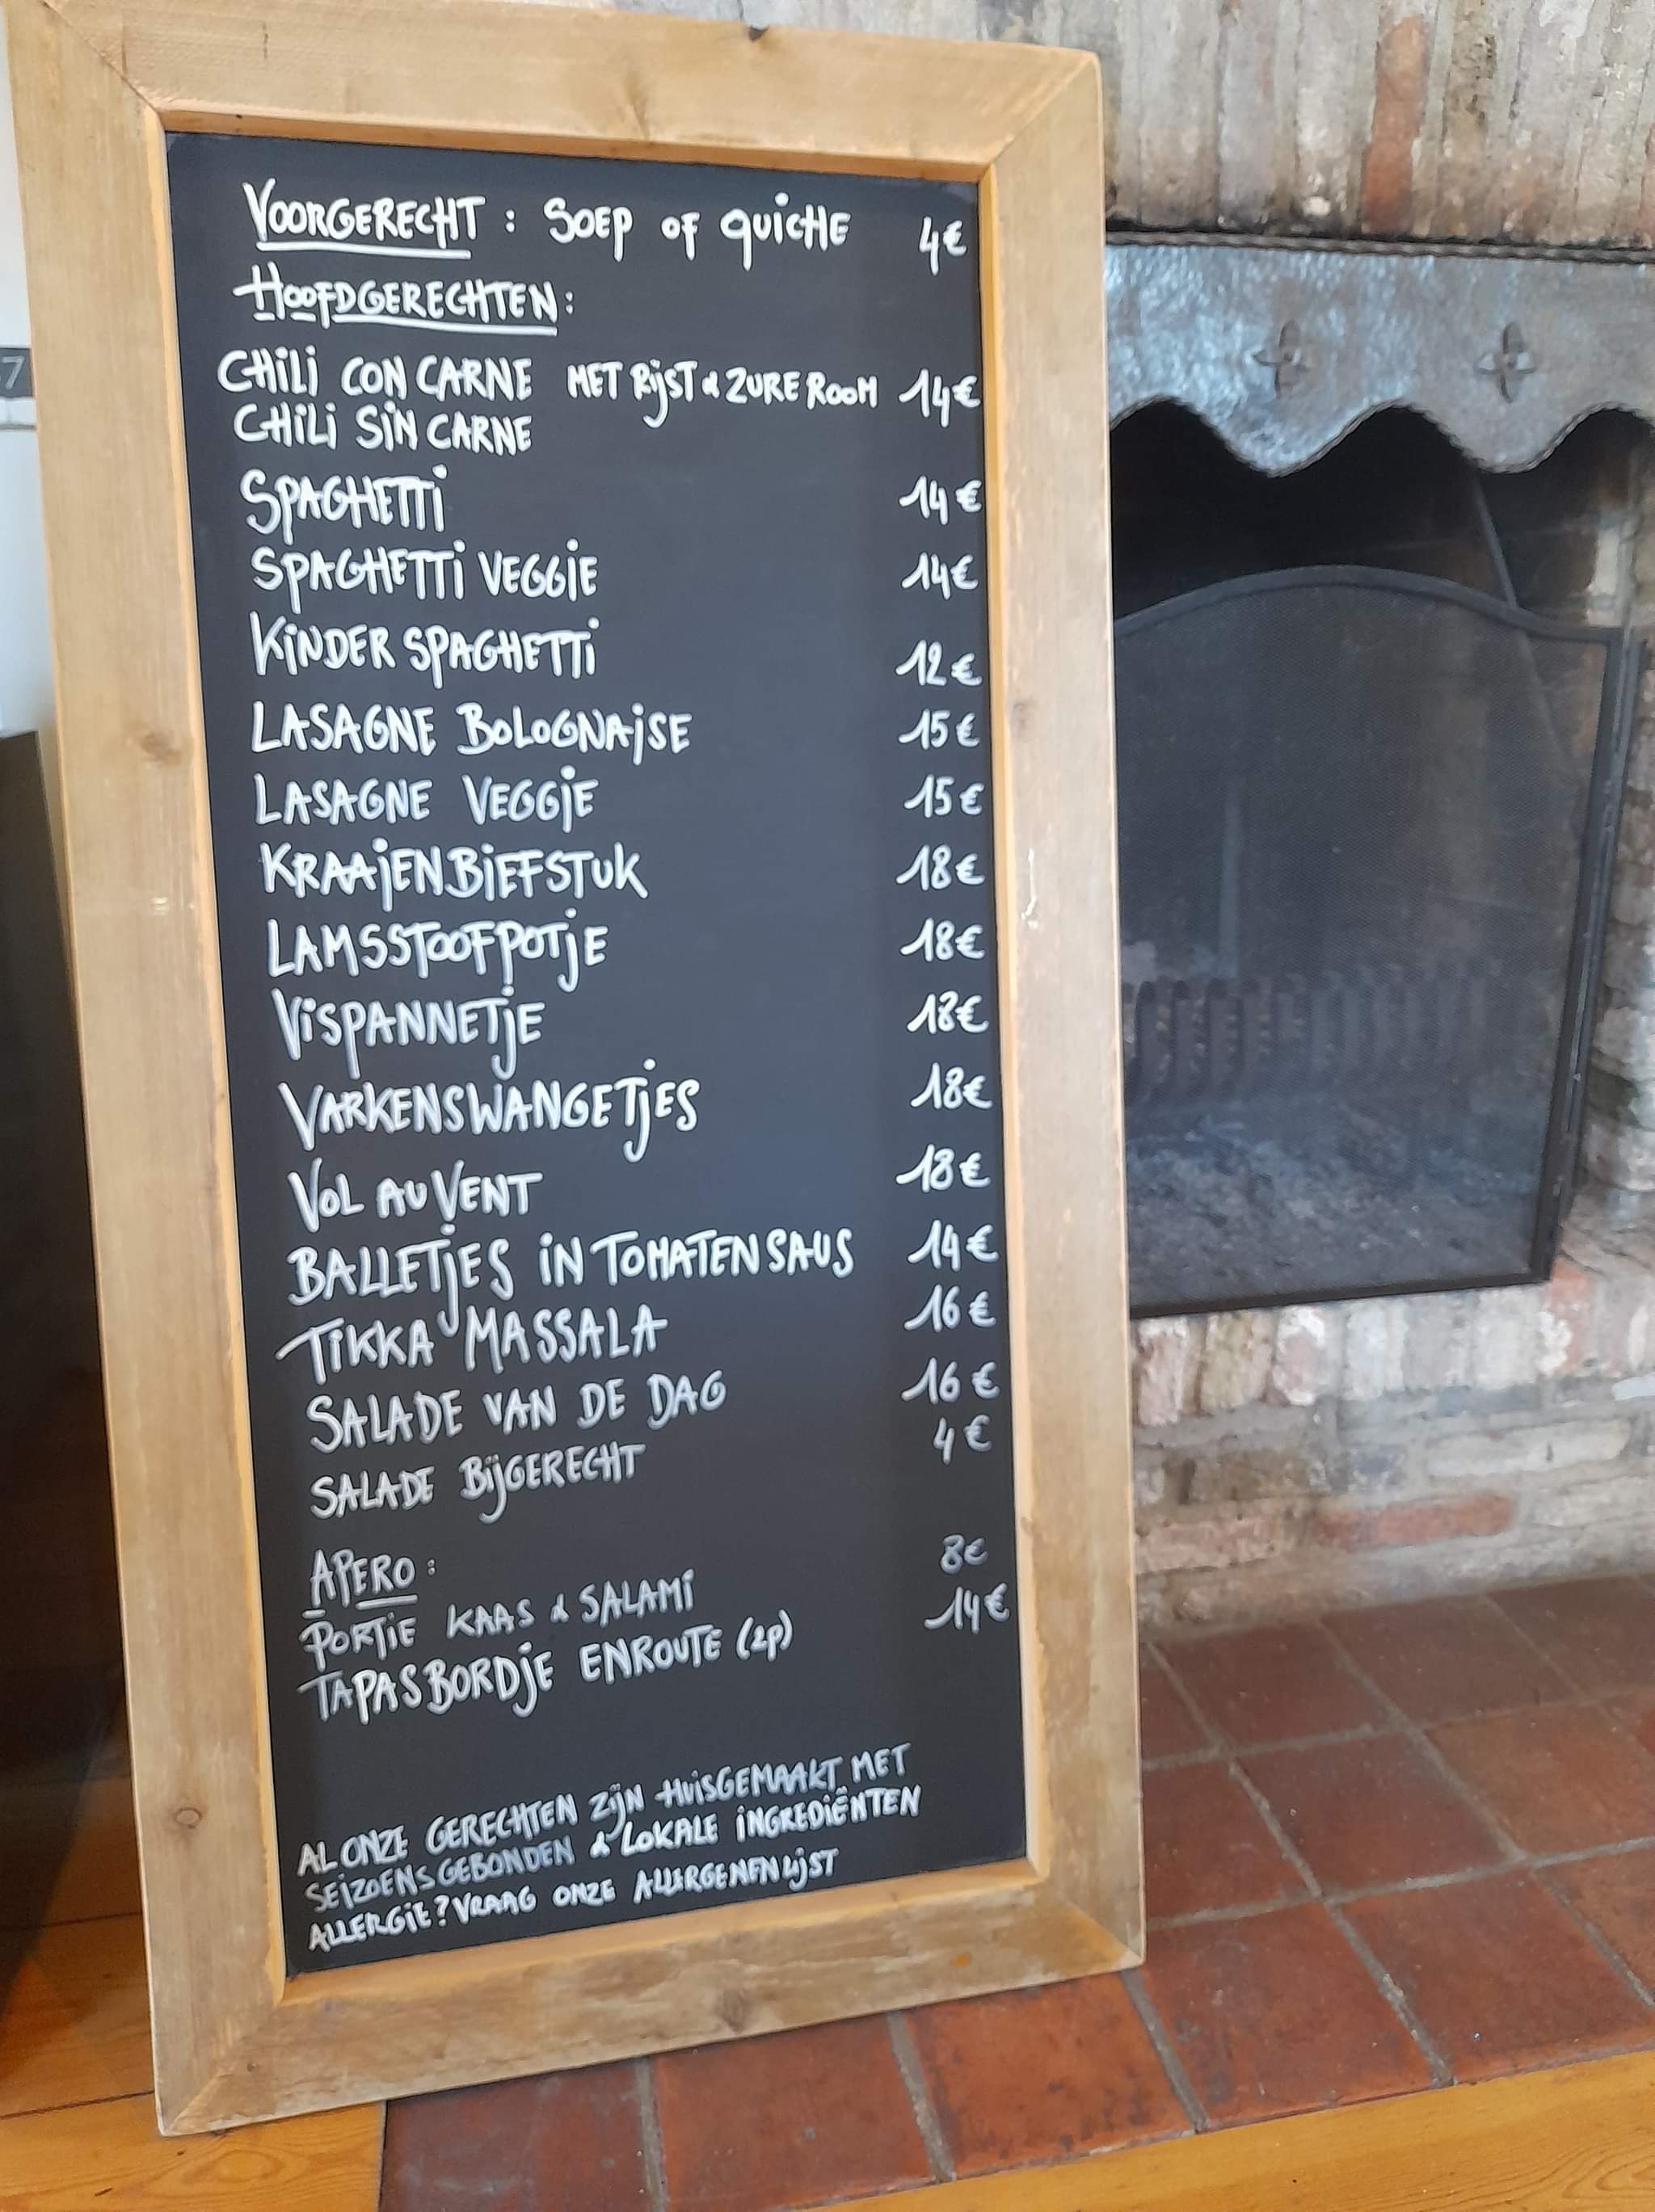 VOORGERECHT : SOEP OF QUICHE 4€
HOOFDGERECHTEN:
CHILI CON CARNE MET RIJST & ZURE ROOM 14€
CHILI SIN CARNE
SPAGHETTI 14€
SPAGHETTI VEGGIE 14€
KINDER SPAGHETTI 12€
LASAGNE BOLOGNAISE 15€
LASAGNE VEGGIE 15€
KRAAIENBIEFSTUK 18€
LAMSSTOOFPOTJE 18€
VISPANNETJE 18€
VARKENSWANGETJES 18€
VOL AU VENT 18€
BALLETJES IN TOMATENSAUS 14€
TIKKA MASSALA 16€
SALADE VAN DE DAG 16€
SALADE BIJGERECHT 4€
APERO:
PORTIE KAAS & SALAMI 8€
TAPASBORDJE ENROUTE (2P) 14€
AL ONZE GERECHTEN ZIJN HUISGEMAAKT MET
SEIZOENSGEBONDEN & LOKALE INGREDIËNTEN
ALLERGIE? VRAAG ONZE ALLERGENENLIJST
7